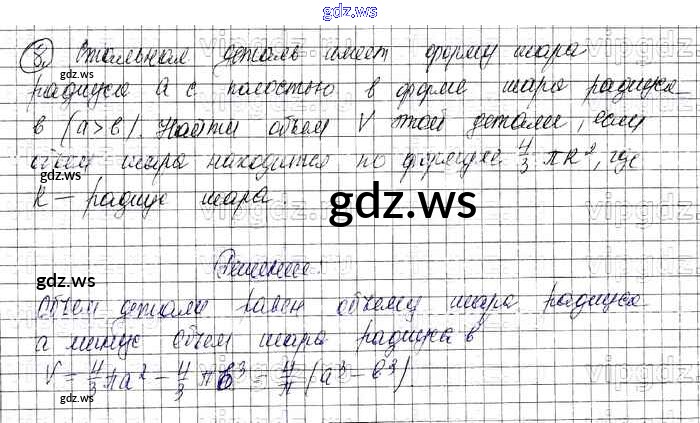 gdz.ws
8. Стальная деталь имеет форму шара
gdz.ws
радиуса а с полостью в форме шара радиуса
в (а>в). Найти объем V этой детали, если
объем шара находится по формуле 4/3 πR³, где
gdz.ws
R — радиус шара.
gdz.ws
Решение
gdz.ws
Объем детали равен объему шара радиуса
а минус объем шара радиуса в
V = 4/3 πа² - 4/3 πб³ = 4/π (а³ - в³)
gdz.ws
gdz.ws